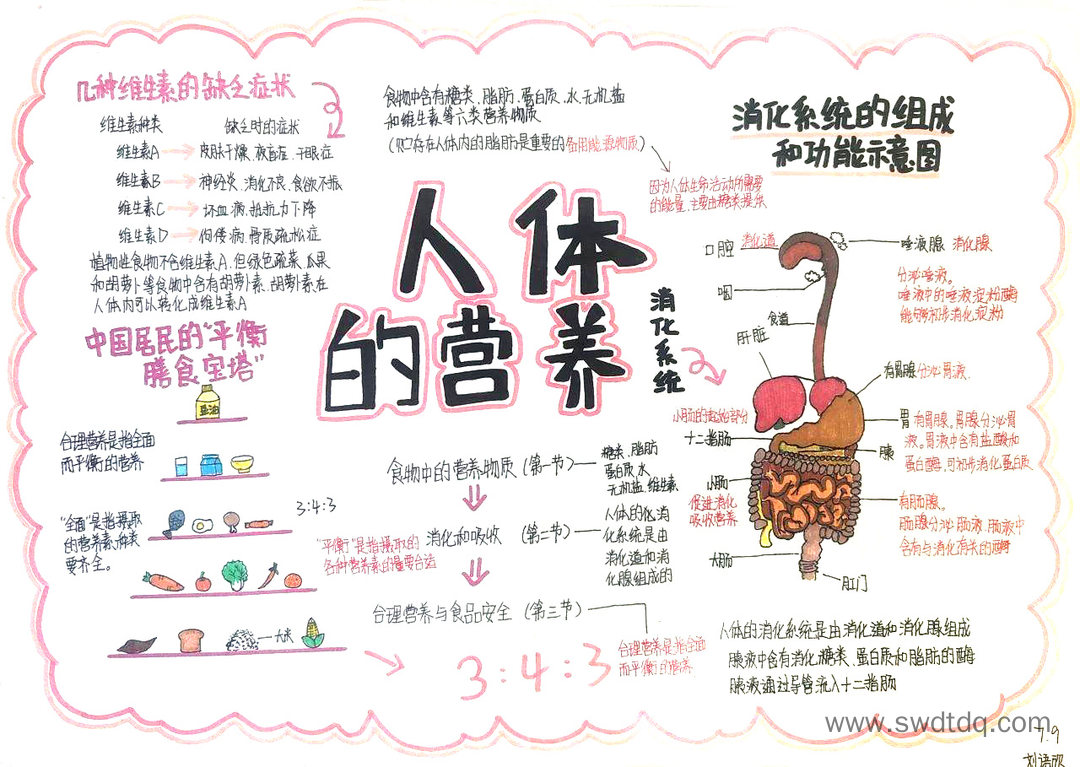 几种维生素的缺乏症状
维生素种类 缺乏时的症状
维生素A 皮肤干燥、夜盲症、干眼症
维生素B 神经炎、消化不良、食欲不振
维生素C 坏血病、抵抗力下降
维生素D 佝偻病、骨质疏松症
植物性食物不含维生素A,但绿色蔬菜、瓜果
和胡萝卜等食物中含有胡萝卜素,胡萝卜素在
人体内可以转化成维生素A
中国居民的"平衡
膳食宝塔"
豆油
合理营养是指全面
而平衡的营养
3:4:3
"全面"是指摄取
的营养素种类
要齐全。
大米
食物中含有糖类、脂肪、蛋白质、水、无机盐
和维生素等六类营养物质
(贮存在人体内的脂肪是重要的备用能源物质)
因为人体生命活动所需要
的能量,主要由糖类提供
人体
的营养
消化系统
食物中的营养物质(第一节)
糖类、脂肪
蛋白质、水
无机盐、维生素
消化和吸收 (第二节)
人体的消
化系统是由
消化道和消
化腺组成的
"平衡"是指摄取的
各种营养素的量要合适
合理营养与食品安全 (第三节)
合理营养是指全面
而平衡的营养
3:4:3
消化系统的组成
和功能示意图
口腔 消化道
唾液腺 消化腺
分泌唾液。
唾液中的唾液淀粉酶
能够初步消化淀粉
咽
食道
肝脏
有胃腺分泌胃液
胃 有胃腺。胃腺分泌胃
液。胃液中含有盐酸和
蛋白酶,可初步消化蛋白质
小肠的起始部分
十二指肠
胰
小肠
促进消化
吸收营养
有肠腺。
肠腺分泌肠液,肠液中
含有与消化有关的酶
大肠
肛门
人体的消化系统是由消化道和消化腺组成
胰液中含有消化糖类、蛋白质和脂肪的酶
胰液通过导管流入十二指肠
www.swdtdq.com
7.9